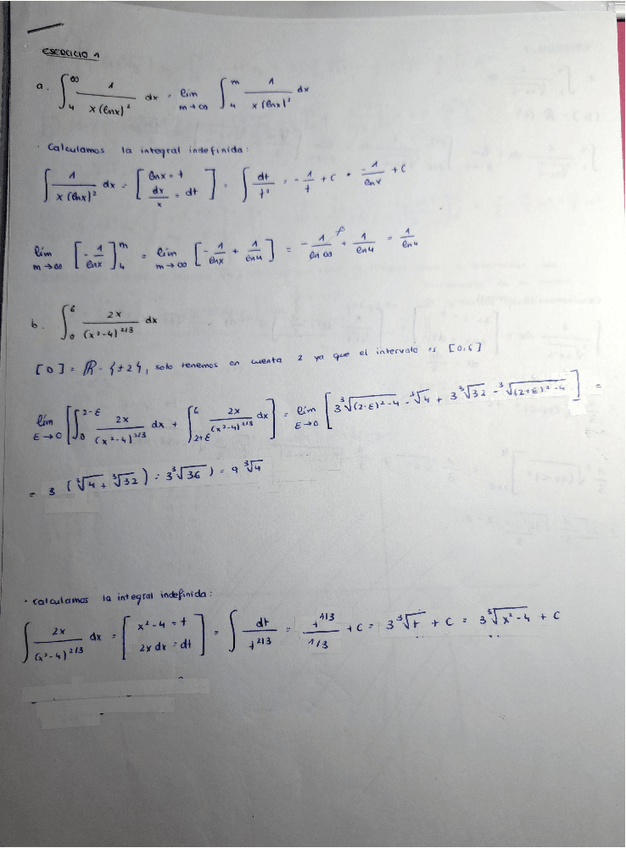 EJERCICIO 1
a. ∫₄^∞ 1/(x(lnx)²) dx = lim m→∞ ∫₄^m 1/(x(lnx)²) dx
· Calculamos la integral indefinida:
∫ 1/(x(lnx)²) dx = [lnx = t, dx/x = dt] = ∫ dt/t² = -1/t + C = -1/lnx + C
lim m→∞ [-1/lnx]₄^m = lim m→∞ [-1/lnx + 1/ln4] = -1/ln∞ + 1/ln4 = 1/ln4
b. ∫₀^6 2x/(x²-4)^2/3 dx
[D] = R - {±2}, solo tenemos en cuenta 2 ya que el intervalo es [0,6]
lim ε→0 [∫₀^2-ε 2x/(x²-4)^2/3 dx + ∫_2+ε^6 2x/(x²-4)^2/3 dx] = lim ε→0 [3∛((2-ε)²-4) - ∛4 + 3∛32 - ∛((2+ε)²-4)] =
= 3 (∛4 + ∛32) = 3∛36) = 9∛4
· Calculamos la integral indefinida:
∫ 2x/(x²-4)^2/3 dx = [x²-4 = t, 2x dx = dt] = ∫ dt/t^2/3 = t^1/3/1/3 + C = 3∛t + C = 3∛(x²-4) + C